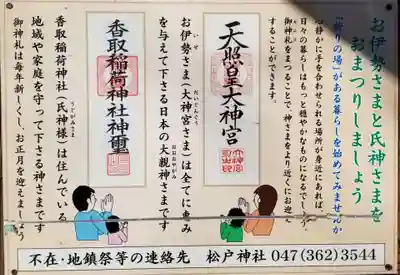 お伊勢さまと氏神さまを
おまつりしましょう
「祈りの場」がある暮らしを始めてみませんか
心静かに手を合わせられる場所が身近にあれば、
日々の暮らしはもっと穏やかなものになるでしょう。
御神札をまつることで、神さまをより近くにお迎え
することができます。
天照皇大神宮
お伊勢さま(大神宮さま)は全てに恵み
いせ
だいじんぐう
を与えて下さる日本の大親神さまです
おおおやがみ
香取稲荷神社神璽
香取稲荷神社(氏神様)は住んでいる
うじがみさま
地域や家庭を守って下さる神さまです
御神札は毎年新しくし、お正月を迎えましょう
不在・地鎮祭等の連絡先 松戸神社 047(362)3544